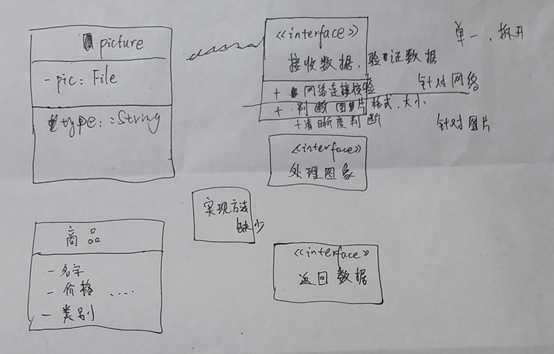 picture
- pic: File
type: : String
<<interface>>
接收数据、验证数据
+ 网络连接校验
+ 判断图片格式、大小
+ 清晰度判断
单一、拆开
针对网络
针对图片
<<interface>>
处理图象
实现方法
缺少
商品
- 名字
- 价格 ....
- 类别
<<interface>>
返回数据